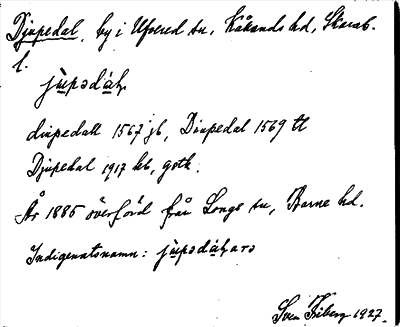 Djupedal, by i Ufvered sn, Kåkinds hd, Skarab.
l.
jùpədàɫ,
diupedall 1567 jb, Diupedal 1569 tl
Djupedal 1917 kb, gstk.
År 1885 överförd från Longs sn, Barne hd.
Indigenatsnamn: jùpədàɫarə
Sven Friberg 1927.